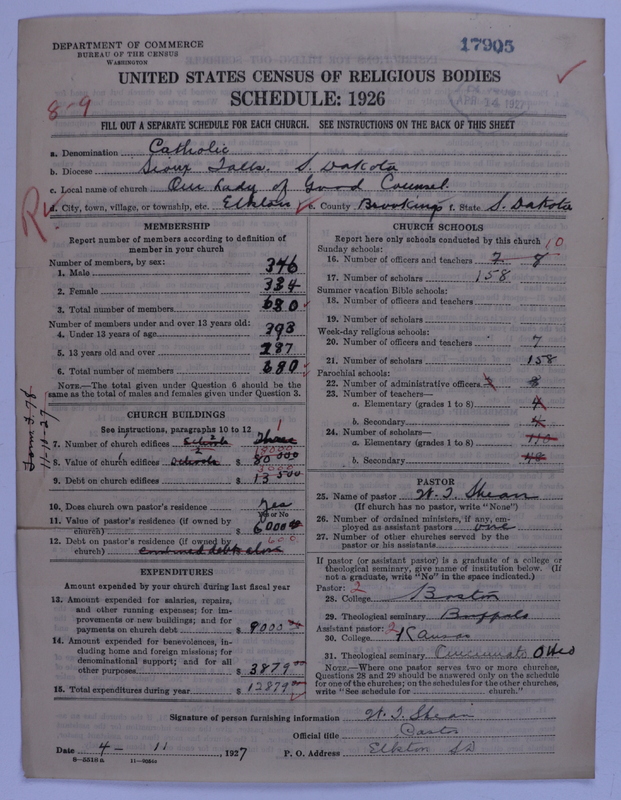 DEPARTMENT OF COMMERCE
BUREAU OF THE CENSUS
WASHINGTON
17905
UNITED STATES CENSUS OF RELIGIOUS BODIES
SCHEDULE: 1926
8-9
APR 14 1927
FILL OUT A SEPARATE SCHEDULE FOR EACH CHURCH. SEE INSTRUCTIONS ON THE BACK OF THIS SHEET
a. Denomination Catholic
b. Diocese Sioux Falls. S. Dakota
c. Local name of church Our Lady of Good Counsel.
d. City, town, village, or township, etc. Elkton e. County Brookings f. State S. Dakota
MEMBERSHIP
Report number of members according to definition of
member in your church
Number of members, by sex:
1. Male 346
2. Female 334
3. Total number of members 680
Number of members under and over 13 years old:
4. Under 13 years of age 393
5. 13 years old and over 287
6. Total number of members 680
NOTE.—The total given under Question 6 should be the
same as the total of males and females given under Question 3.
Form F-78
11-11-27
CHURCH BUILDINGS
See instructions, paragraphs 10 to 12
1
7. Number of church edifices Schools Three
8. Value of church edifices Schools $ 80000
9. Debt on church edifices $ 13500
10. Does church own pastor's residence Yes
Yes or No
11. Value of pastor's residence (if owned by
church) $ 6000
12. Debt on pastor's residence (if owned by
church)
EXPENDITURES
Amount expended by your church during last fiscal year
13. Amount expended for salaries, repairs,
and other running expenses; for im-
provements or new buildings; and for
payments on church debt $ 9000
14. Amount expended for benevolences, in-
cluding home and foreign missions; for
denominational support; and for all
other purposes $ 3879
15. Total expenditures during year $ 12879
CHURCH SCHOOLS
Report here only schools conducted by this church
10
Sunday schools:
16. Number of officers and teachers 7 8
17. Number of scholars 158
Summer vacation Bible schools:
18. Number of officers and teachers
19. Number of scholars
Week-day religious schools:
20. Number of officers and teachers 7
21. Number of scholars 158
Parochial schools:
22. Number of administrative officers
23. Number of teachers—
a. Elementary (grades 1 to 8) 4
b. Secondary 4
24. Number of scholars—
a. Elementary (grades 1 to 8)
b. Secondary
PASTOR
25. Name of pastor W. J. Shean
(If church has no pastor, write "None")
26. Number of ordained ministers, if any, em-
ployed as assistant pastors one
27. Number of other churches served by the
pastor or his assistants
If pastor (or assistant pastor) is a graduate of a college or
theological seminary, give name of institution below. (If
not a graduate, write "No" in the space indicated.)
Pastor: 2
28. College Boston
29. Theological seminary Buffalo
Assistant pastor: 2
30. College Kansas
31. Theological seminary Cincinnati Ohio
NOTE.—Where one pastor serves two or more churches,
Questions 28 and 29 should be answered only on the schedule
for one of the churches; on the schedules for the other churches,
write "See schedule for church."
Signature of person furnishing information W. J. Shean
Official title Pastor
Date 4 - 11 1927 P. O. Address Elkton SD
8-5518 a 11-9056a